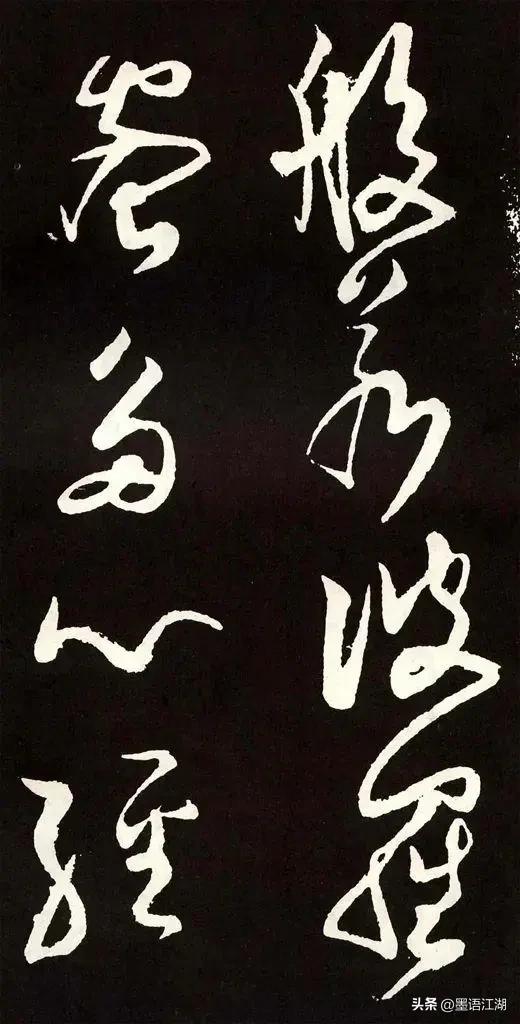 般若波羅
蜜多心經
头条 @墨语江湖